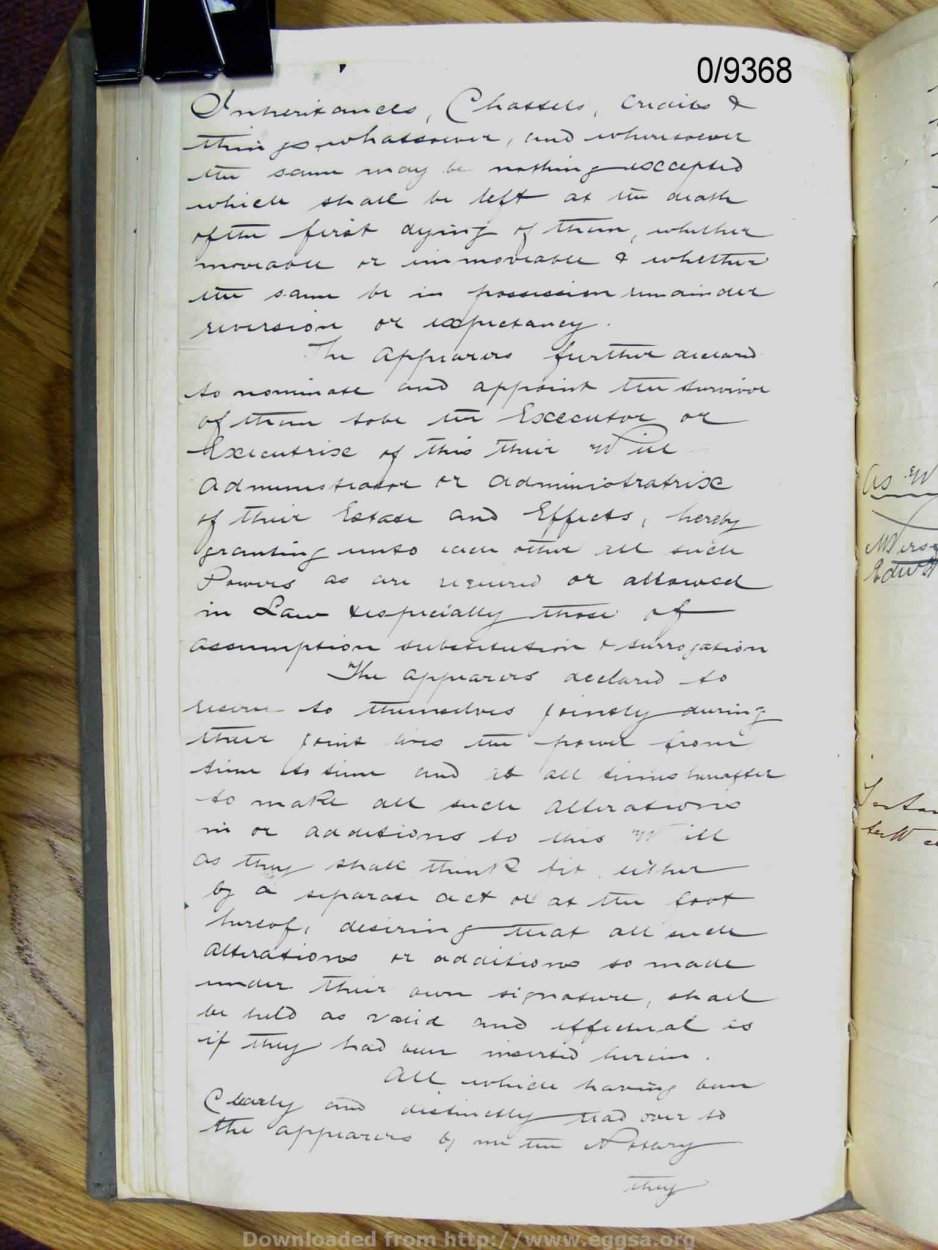 0/9368
Inheritances, Chattels, Credits &
things whatsoever, and wheresoever
the same may be nothing excepted
which shall be left at the death
of the first dying of them, whether
moveable or immoveable & whether
the same be in possession remainder
reversion or expectancy.
The appearers further declared
to nominate and appoint the survivor
of them to be the Executor or
Executrix of this their Will
Administrator or administratrix
of their Estate and Effects, hereby
granting unto each other all such
Powers as are required or allowed
in Law & especially those of
assumption substitution & surrogation
The appearers declared to
reserve to themselves jointly during
their joint lives the power from
time to time and at all times hereafter
to make all such alterations
in or additions to this Will
as they shall think fit either
by a separate act or at the foot
hereof, desiring that all such
alterations or additions so made
under their own signature, shall
be held as valid and effectual as
if they had been inserted herein.
All which having been
Clearly and distinctly read over to
the appearers by me the Notary
they
As W
Downloaded from http://www.eggsa.org